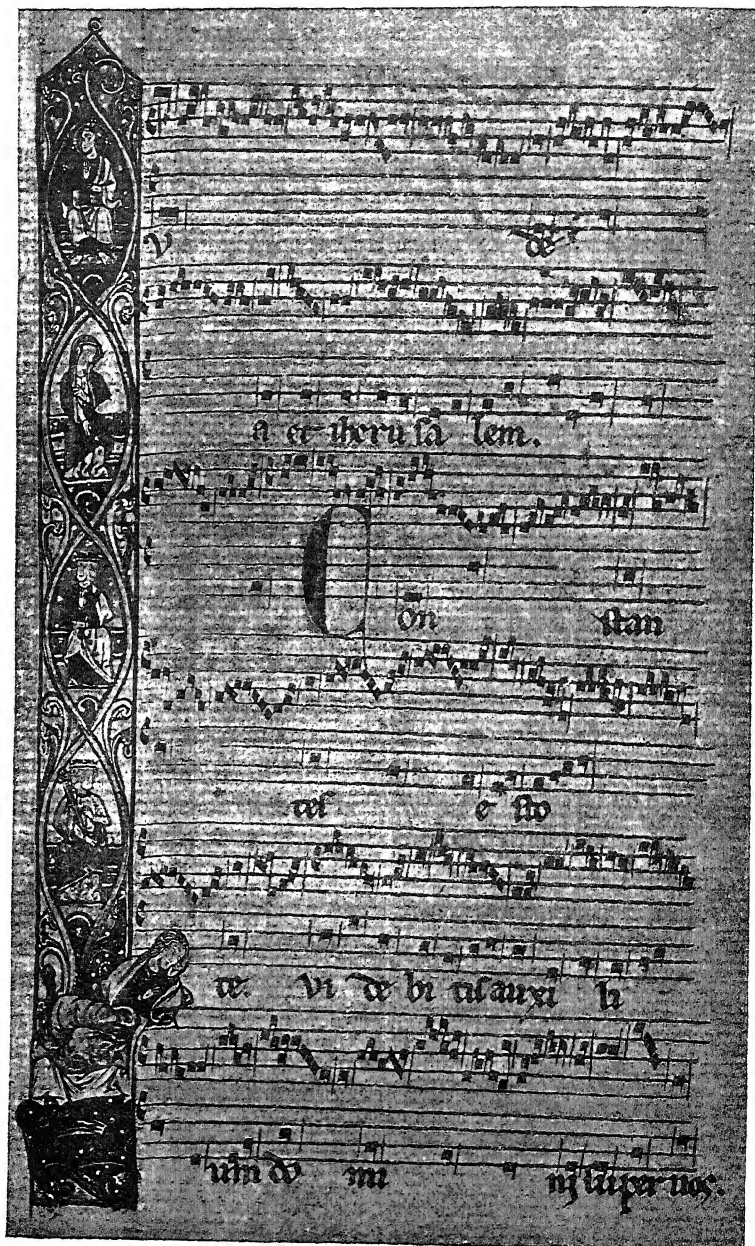 V de
a et iheru sa lem.
Con stan
tes e sto
te. vi de bi tis auxi li
um do mi nj super uos.